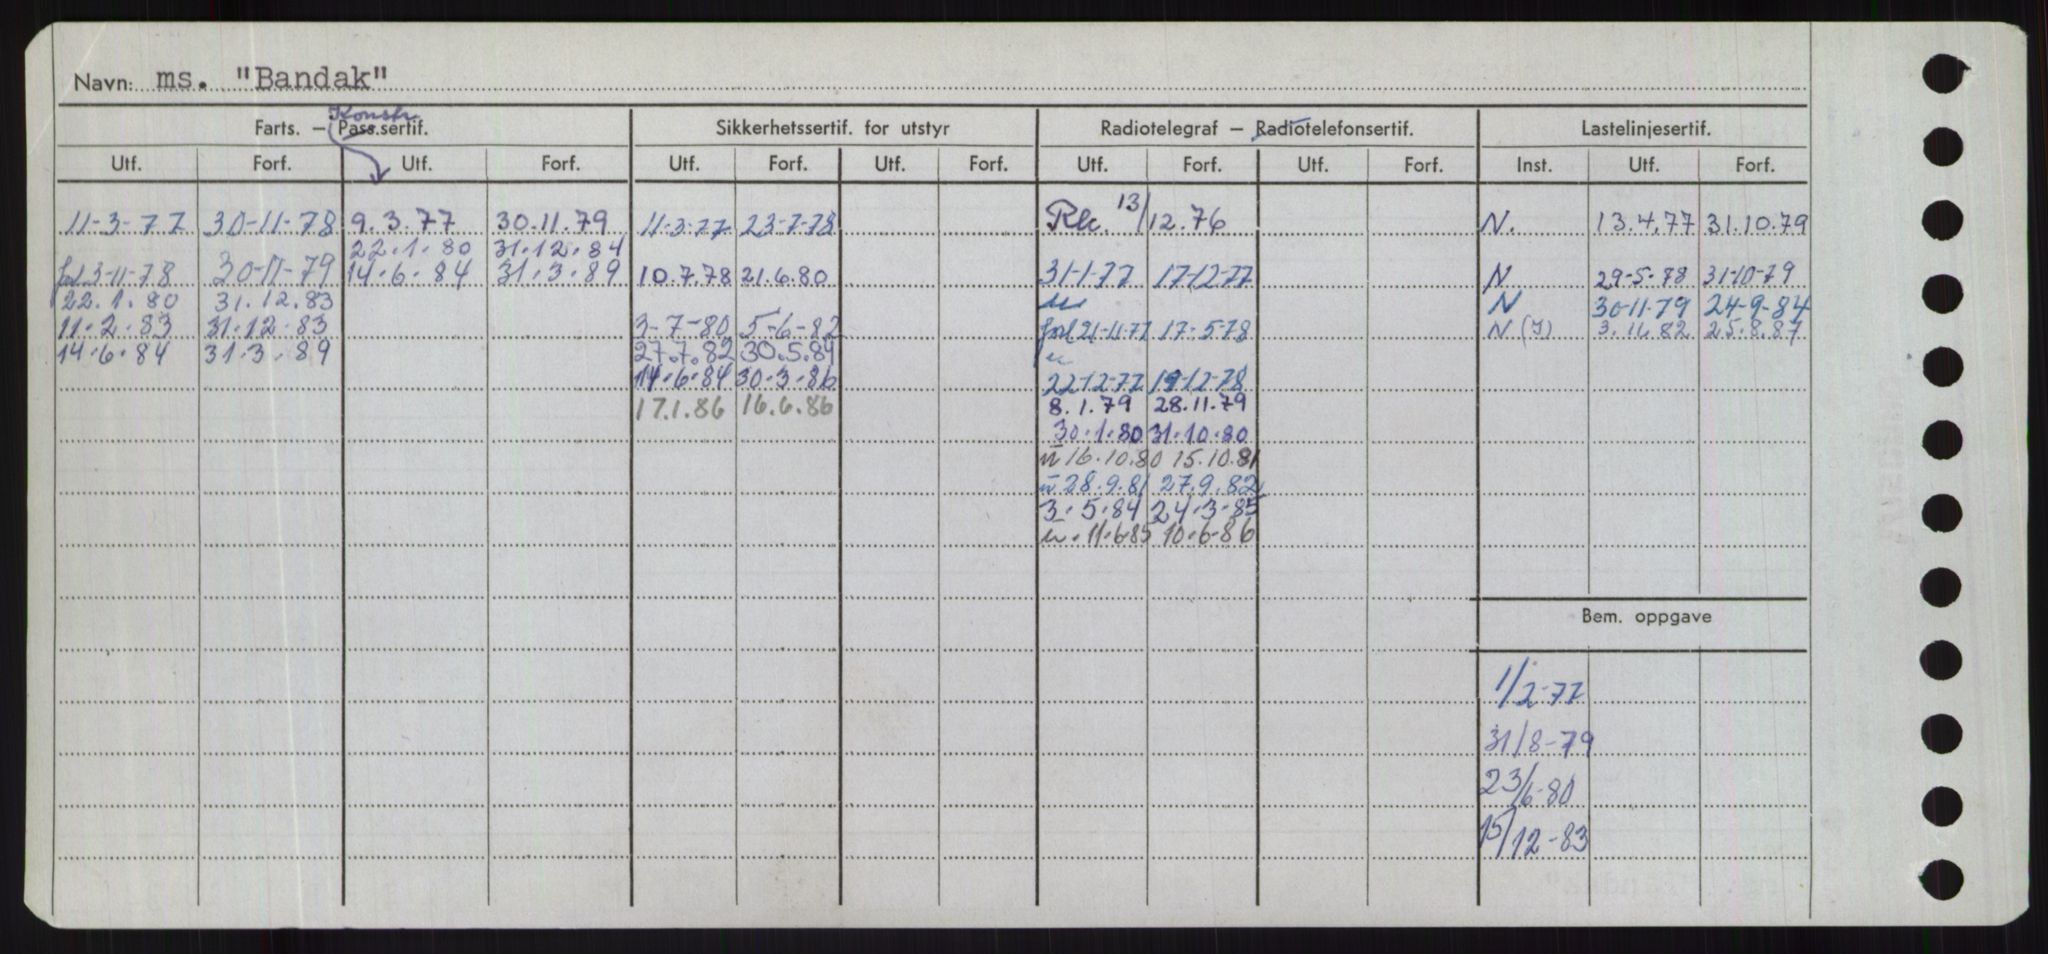 Navn: ms. "Bandak"
Konstr.
Farts. — Pass.sertif. Sikkerhetssertif. for utstyr Radiotelegraf — Radiotelefonsertif. Lastelinjesertif.
Utf. Forf. Utf. Forf. Utf. Forf. Utf. Forf. Utf. Forf. Utf. Forf. Inst. Utf. Forf.
11-3-77 30-11-78 9.3.77 30.11.79 11-3-77 23-7-78 13/12.76 N. 13.4.77 31.10.79
22.1.80 31.12.84
3-11-78 30-11-79 14.6.84 31.3.89 10.7.78 21.6.80 31-1-77 17-12-77 N 29-5-78 31-10-79
22.1.80 31.12.83 N 30-11-79 24-9-84
11.2.83 31.12.83 3-7-80 5-6-82 21-11-77 17-5-78 N (I) 3.11.82 25.8.87
14.6.84 31.3.89 27.7.82 30.5.84
14.6.84 30.3.86 22-12-77 19-12-78
17.1.86 16.6.86 8.1.79 28.11.79
30.1.80 31.10.80
16.10.80 15.10.81
28.9.81 27.9.82
3.5.84 24.3.85
11.6.85 10.6.86
Bem. oppgave
1/2-77
31/8-79
23/6-80
15/12-83